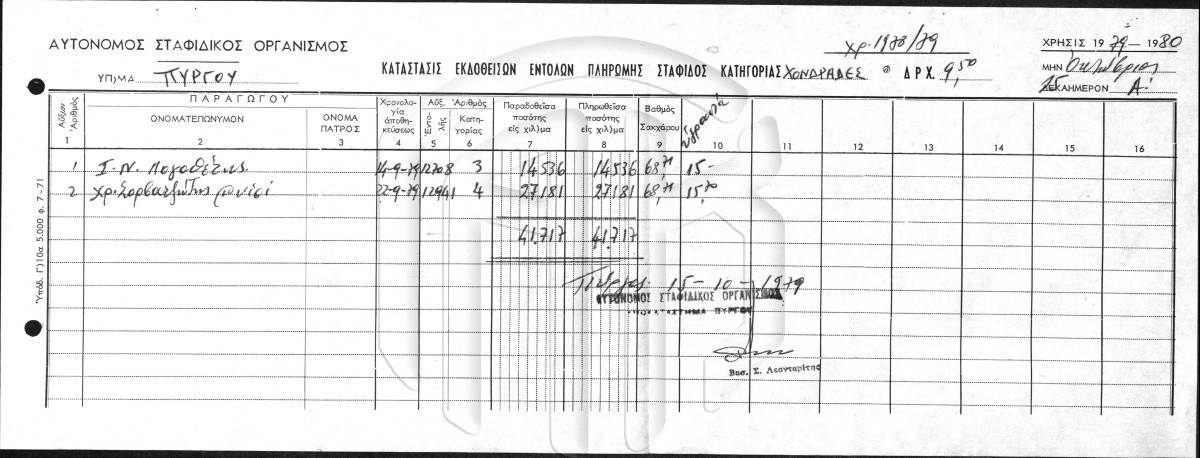 ΑΥΤΟΝΟΜΟΣ ΣΤΑΦΙΔΙΚΟΣ ΟΡΓΑΝΙΣΜΟΣ
ΥΠ)ΜΑ ΠΥΡΓΟΥ
ΚΑΤΑΣΤΑΣΙΣ ΕΚΔΟΘΕΙΣΩΝ ΕΝΤΟΛΩΝ ΠΛΗΡΩΜΗΣ ΣΤΑΦΙΔΟΣ ΚΑΤΗΓΟΡΙΑΣ ΧΟΝΔΡΑΔΕΣ @ ΔΡΧ. 9,50
Χρ. 1978/79
ΧΡΗΣΙΣ 1979 - 1980
ΜΗΝ Οκτώβριος
ΔΕΚΑΗΜΕΡΟΝ Α.
Αὔξων Ἀριθμός
ΠΑΡΑΓΩΓΟΥ
ΟΝΟΜΑΤΕΠΩΝΥΜΟΝ
ΟΝΟΜΑ ΠΑΤΡΟΣ
Χρονολογία ἀποθηκεύσεως
Αὔξ. Ἀριθμός
Ἐντολῆς
Κατηγορίας
Παραδοθεῖσα ποσότης εἰς χιλ)μα
Πληρωθεῖσα ποσότης εἰς χιλ)μα
Βαθμὸς Σακχάρου
Υγρασία
1 2 3 4 5 6 7 8 9 10 11 12 13 14 15 16
1 Ι. Ν. Λογοθέτης 14-9-79 12708 3 14536 14536 68,71 15-
2 22-9-79 12941 4 27181 27181 68,71 15,70
41.717 41.717
Πύργος 15-10-1979
ΑΥΤΟΝΟΜΟΣ ΣΤΑΦΙΔΙΚΟΣ ΟΡΓΑΝΙΣΜΟΣ
ΥΠΟΚΑΤΑΣΤΗΜΑ ΠΥΡΓΟΥ
Βασ. Σ. Λεονταρίτης
Ὑπόδ. Γ)10α 5.000 φ. 7-71